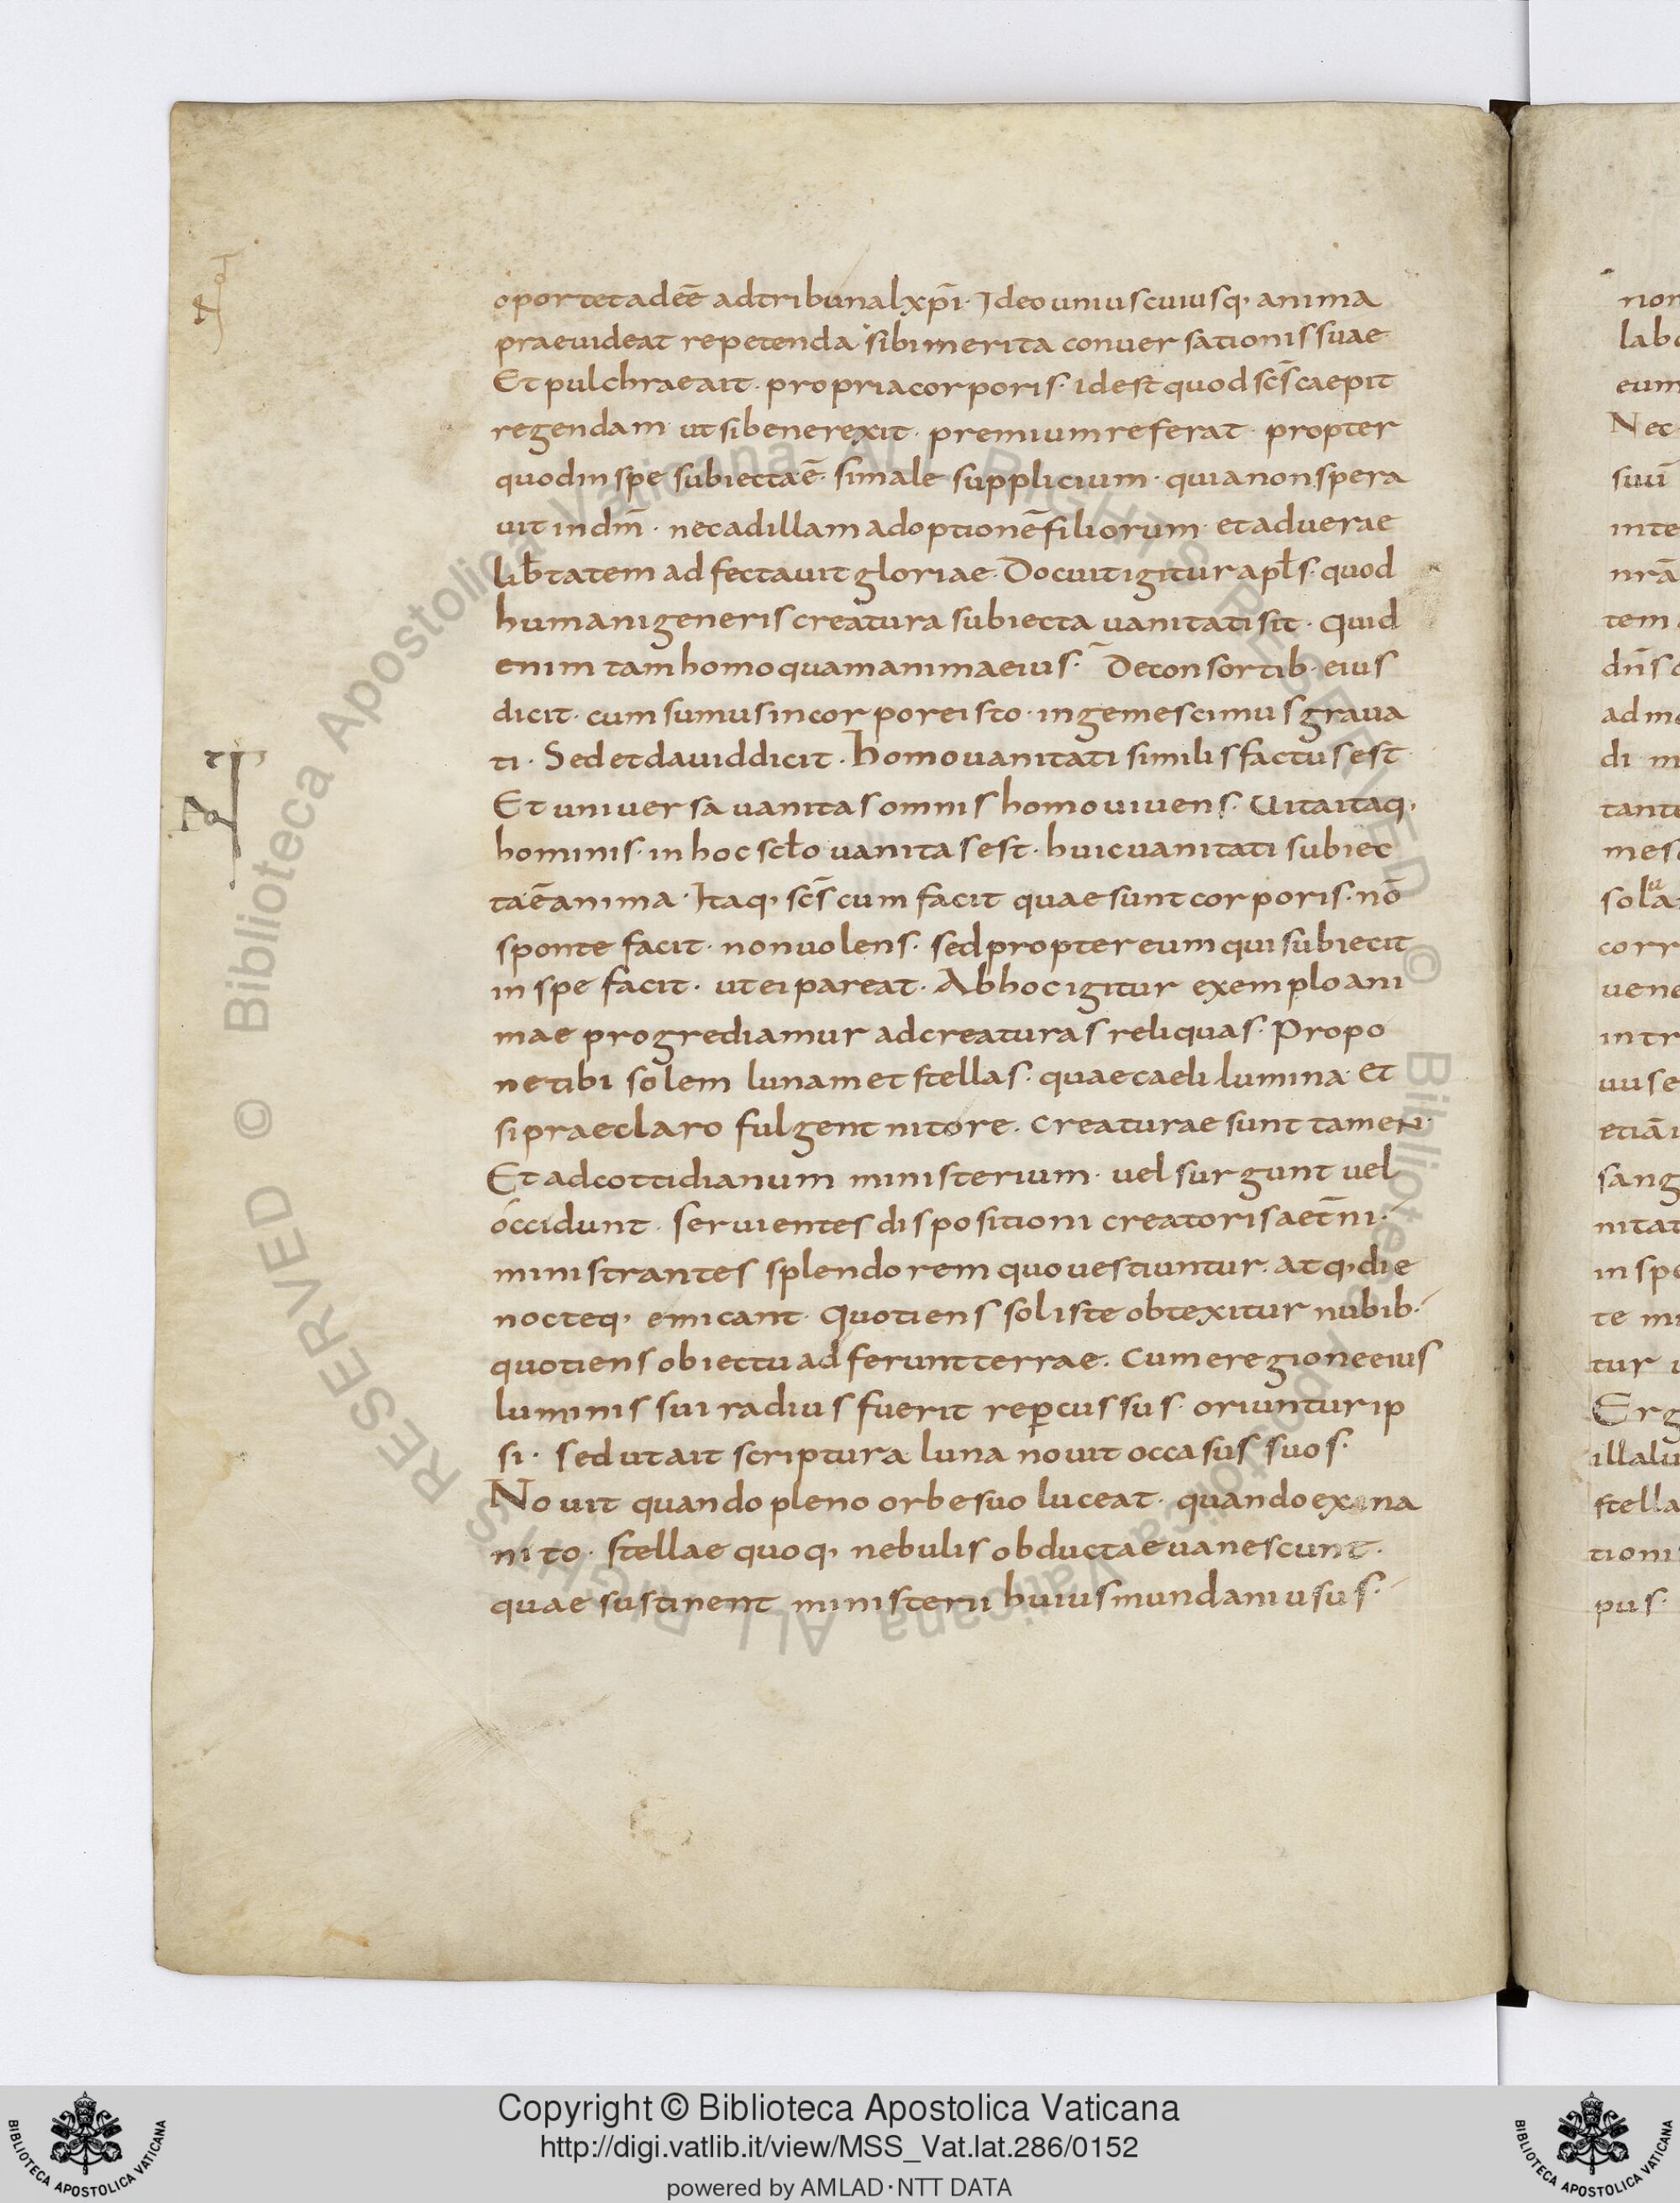 oportet adeē ad tribunal xp̄i. Ideo uniuscuiusq; anima
praeuideat repetenda sibi merita conuersationis suae
Et pulchrae ait. propria corporis. id est quod sc̄s caepit
regendam ut si bene rexit. premium referat. propter
quod in spe subiecta ē. si male supplicium. quia non spera
uit in dm̄. nec ad illam adoptionē filiorum. et ad uerae
lib̄tatem adfectauit gloriae. Docuit igitur apl̄s. quod
humani generis creatura subiecta uanitati sit. Quid
enim tam homo quam anima eius. De consortib. eius
dicit. cum sumus in corpore isto. ingemescimus graua
ti. Sed et dauid dicit. Homo uanitati similis factus est
Et uniuersa uanitas omnis homo uiuens. Uita itaq;
hominis. in hoc scl̄o uanitas est. huic uanitati subiec
ta ē anima. Itaq; sc̄s cum facit quae sunt corporis. nō
sponte facit. non uolens. sed propter eum qui subiecit
in spe facit. ut ei pareat. Ab hoc igitur exemplo ani
mae progrediamur ad creaturas reliquas. Propo
ne tibi solem lunam et stellas. quae caeli lumina et
si praeclaro fulgent nitore. creaturae sunt tamen.
Et ad cottidianum ministerium. uel surgunt uel
occidunt. seruientes dispositioni creatoris aet̄ni.
ministrantes splendorem quo uestiuntur. atq; die
nocteq; emicant. Quotiens sol iste obtexitur nubib.
quotiens obiectu adferunt terrae. cum e regione eius
luminis sui radius fuerit rep̄cussus. oriuntur ip
si. sed ut ait scriptura luna nouit occasus suos.
Nouit quando pleno orbe suo luceat. quando exina
nito. stellae quoq; nebulis obductae uanescunt.
quae sustinent ministerii huius mundani usus.
non
labo
eum
Nec
suū
inte
nrā
tem
dn̄s
ad me
di
tante
mesc
sola
corr
uene
intr
uuse
etiā
sang
nitat
in spe
te
tur
Erg
illa lu
stella
tioni
pus.
Copyright © Biblioteca Apostolica Vaticana
http://digi.vatlib.it/view/MSS_Vat.lat.286/0152
powered by AMLAD·NTT DATA
BIBLIOTECA APOSTOLICA VATICANA
BIBLIOTECA APOSTOLICA VATICANA
© Biblioteca Apostolica Vaticana ALL RIGHTS RESERVED